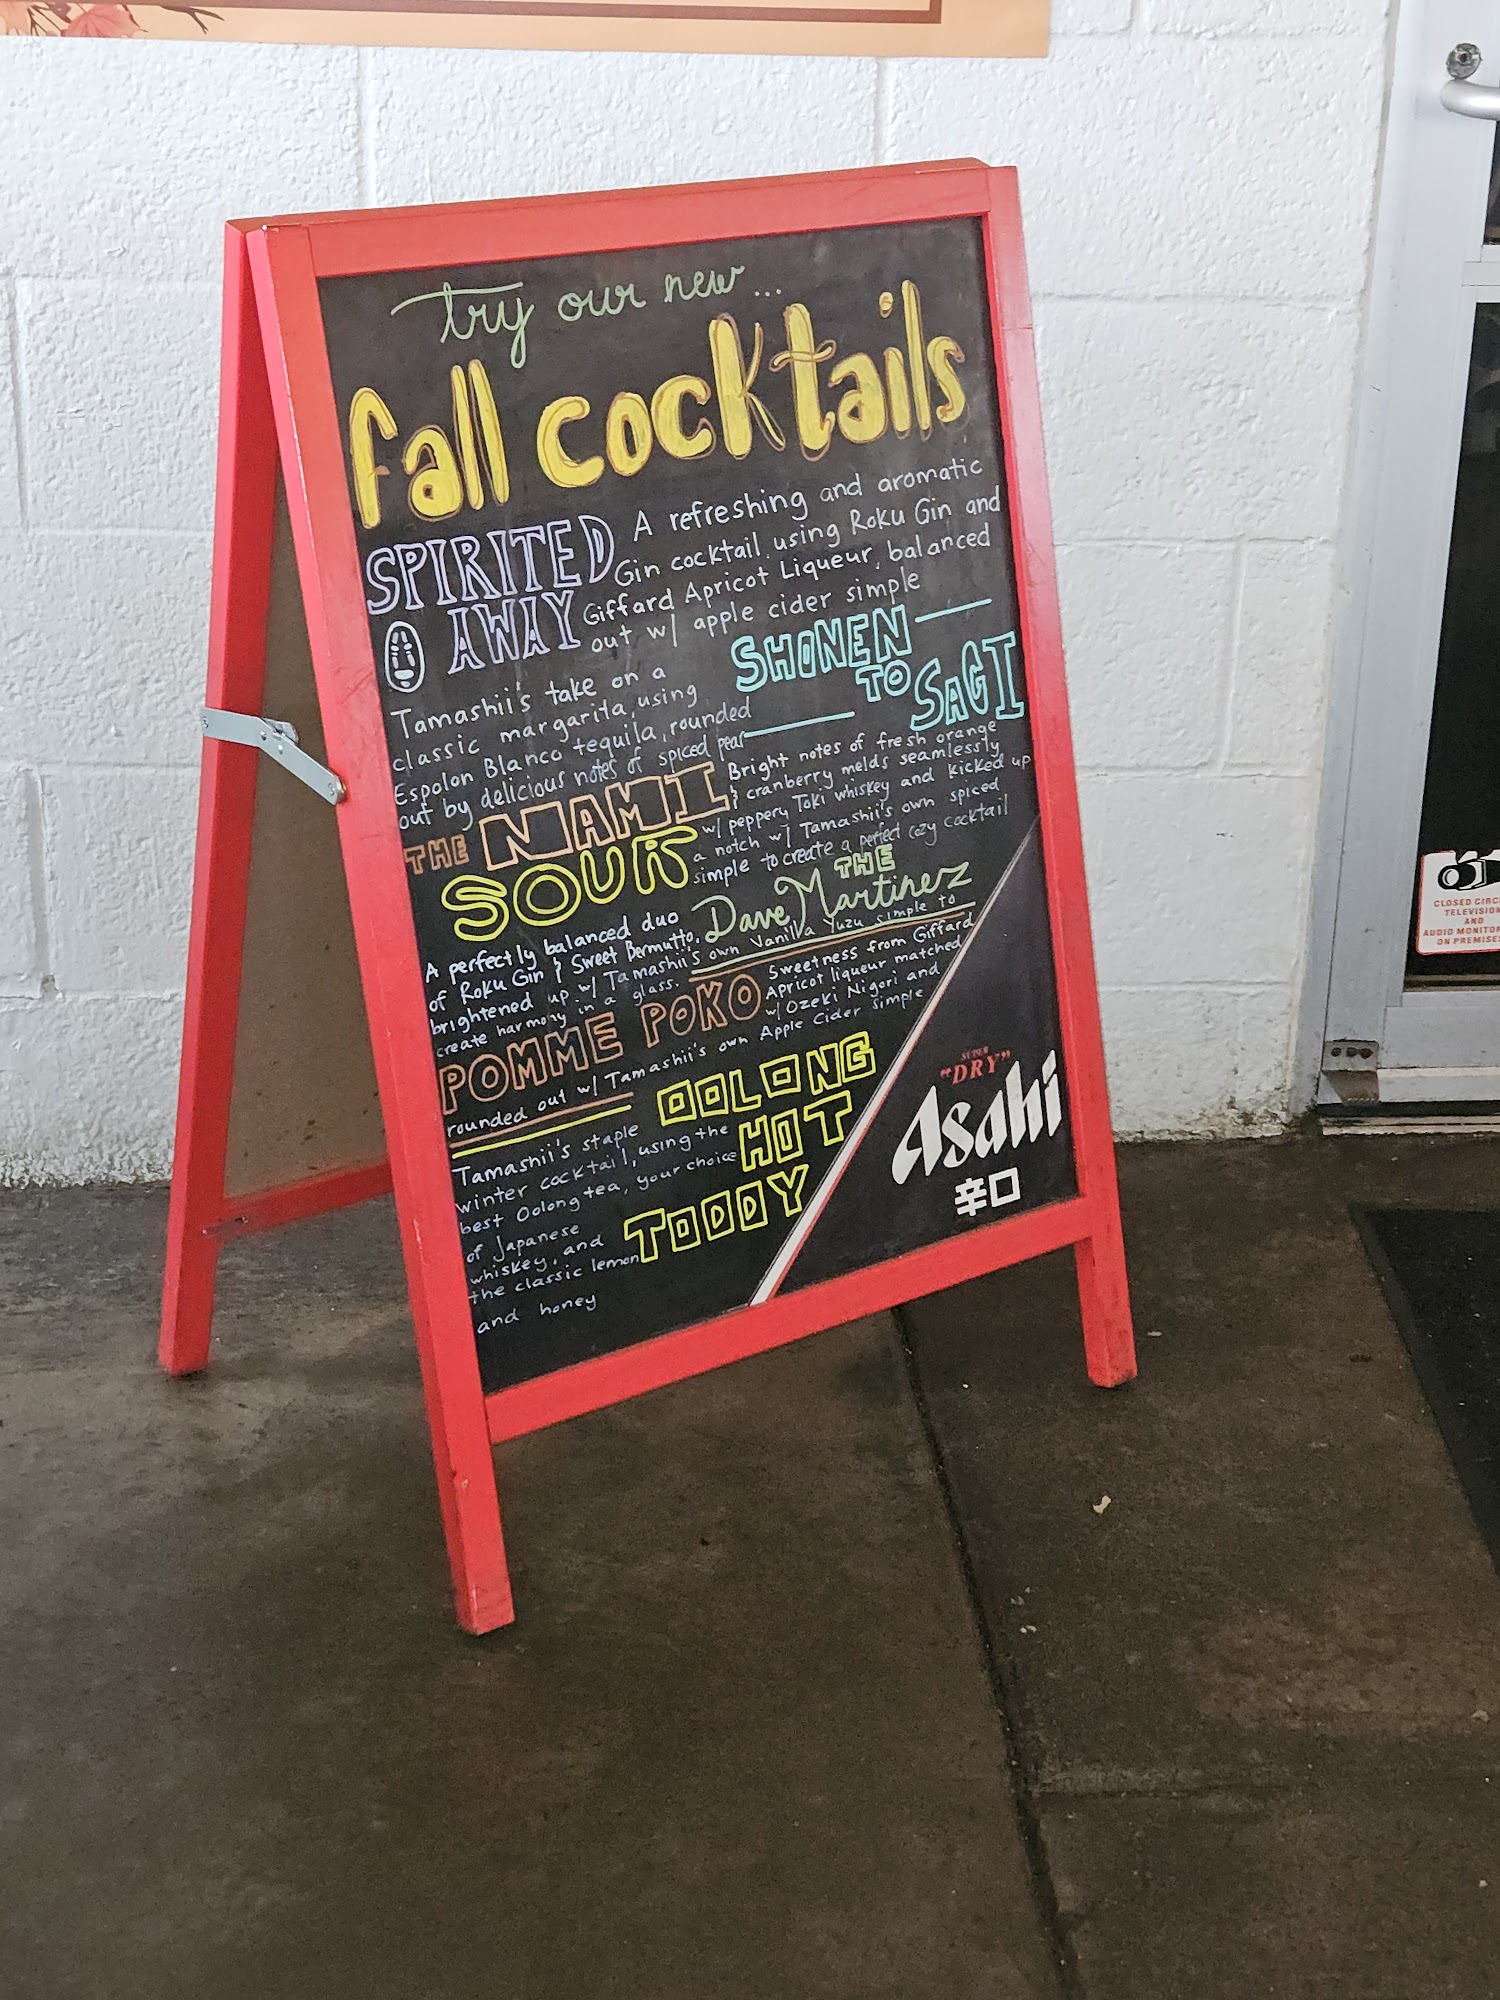 try our new...
fall cocktails
SPIRITED
AWAY
A refreshing and aromatic
Gin cocktail, using Roku Gin and
Giffard Apricot Liqueur, balanced
out w/ apple cider simple
SHONEN
TO SAGI
Tamashii's take on a
classic margarita, using
Espolon Blanco tequila, rounded
out by delicious notes of spiced pear
THE NAMI
SOUR
Bright notes of fresh orange
& cranberry melds seamlessly
w/ peppery Toki whiskey and kicked up
a notch w/ Tamashii's own spiced
simple to create a perfect cozy cocktail
THE
Dave Martinez
A perfectly balanced duo
of Roku Gin & Sweet Bermutto,
brightened up w/ Tamashii's own Vanilla Yuzu simple to
create harmony in a glass.
POMME POKO
Sweetness from Giffard
Apricot liqueur matched
w/ Ozeki Nigori and
rounded out w/ Tamashii's own Apple Cider simple
OOLONG
HOT
TODDY
Tamashii's staple
winter cocktail, using the
best Oolong tea, your choice
of Japanese
whiskey, and
the classic lemon
and honey
SUPER
"DRY"
Asahi
辛口
CLOSED CIRC
TELEVISION
AND
AUDIO MONITOR
ON PREMISES